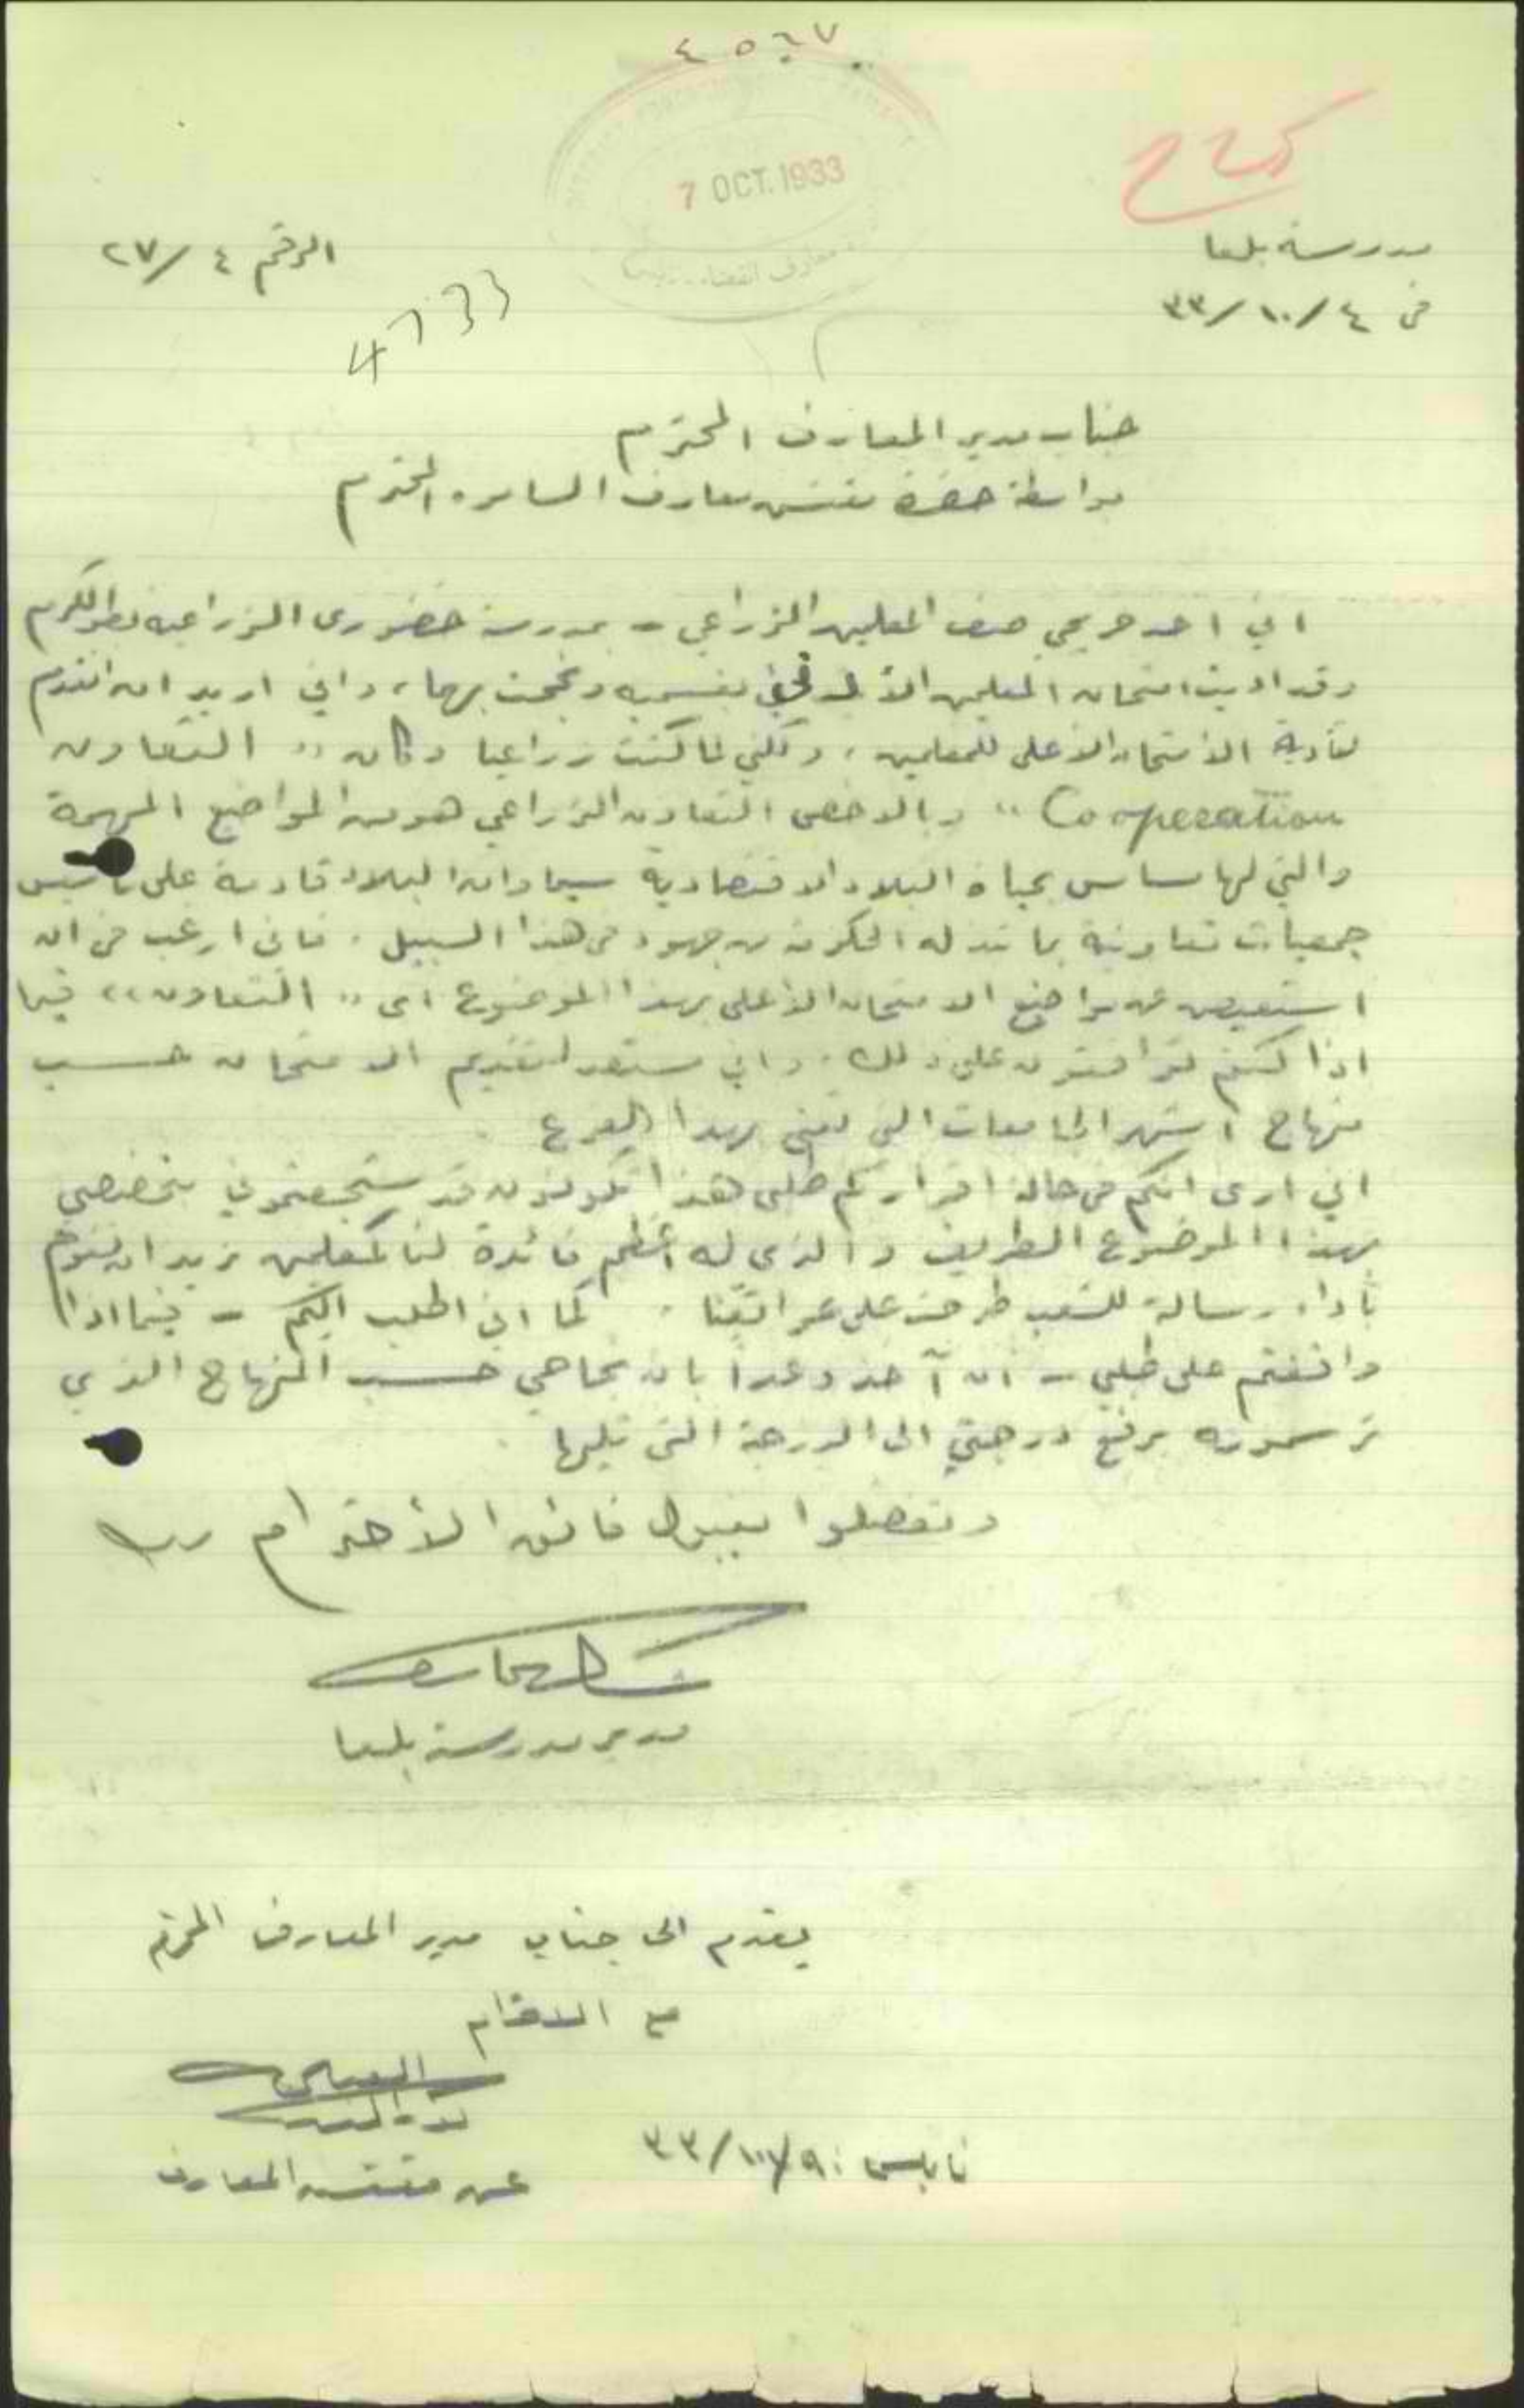 ٤٥٦٧
7 OCT. 1933
مدرسة بلعا
الرقم ٤/٢٧
في ٤/١٠/٣٣
4733
جناب مدير المعارف المحترم
بواسطة حضرة مفتش معارف السامره المحترم
اني احد خريجي صف المعلمين الزراعي - بمدرسة خضوري الزراعية بطولكرم
وقد اديت امتحان المعلمين الأدنى بقسميه ونجحت بهما، واني اريد ان اتقدم
لتأدية الامتحان الاعلى للمعلمين، ولكني لما كنت زراعيا وكان " التعاون
Cooperation " وبالاخص التعاون الزراعي هو من المواضيع المهمة
والتي لها مساس بحياة البلاد الاقتصادية سيما وان البلاد قادمة على تأسيس
جمعيات تعاونية بما تبذله الحكومة من جهود في هذا السبيل. فاني ارغب في ان
استعيض عن مواضيع الامتحان الاعلى بهذا الموضوع اي " التعاون " فيما
اذا كنتم توافقون على ذلك. واني مستعد لتقديم الامتحان حسب
منهاج اشهر الجامعات التي تعنى بهذا الفرع
اني ارى انكم في حالة اقراركم طلبي هذا تكونون قد شجعتموني بتخصصي
بهذا الموضوع الطريف والذي له اعظم فائدة لنا كمعلمين نريد ان نقوم
بأداء رسالة للشعب طرحت على عواتقنا. كما اني اطلب اليكم - فيما اذا
وافقتم على طلبي - ان آخذ وعدا بان نجاحي حسب المنهاج الذي
ترسمونه يرفع درجتي الى الدرجة التي تليها
وتفضلوا بقبول فائق الأحترام
مدير مدرسة بلعا
يقدم الى جناب مدير المعارف المحترم
مع الاحترام
نابلس: ٩/١٠/٣٣
عن مفتش المعارف